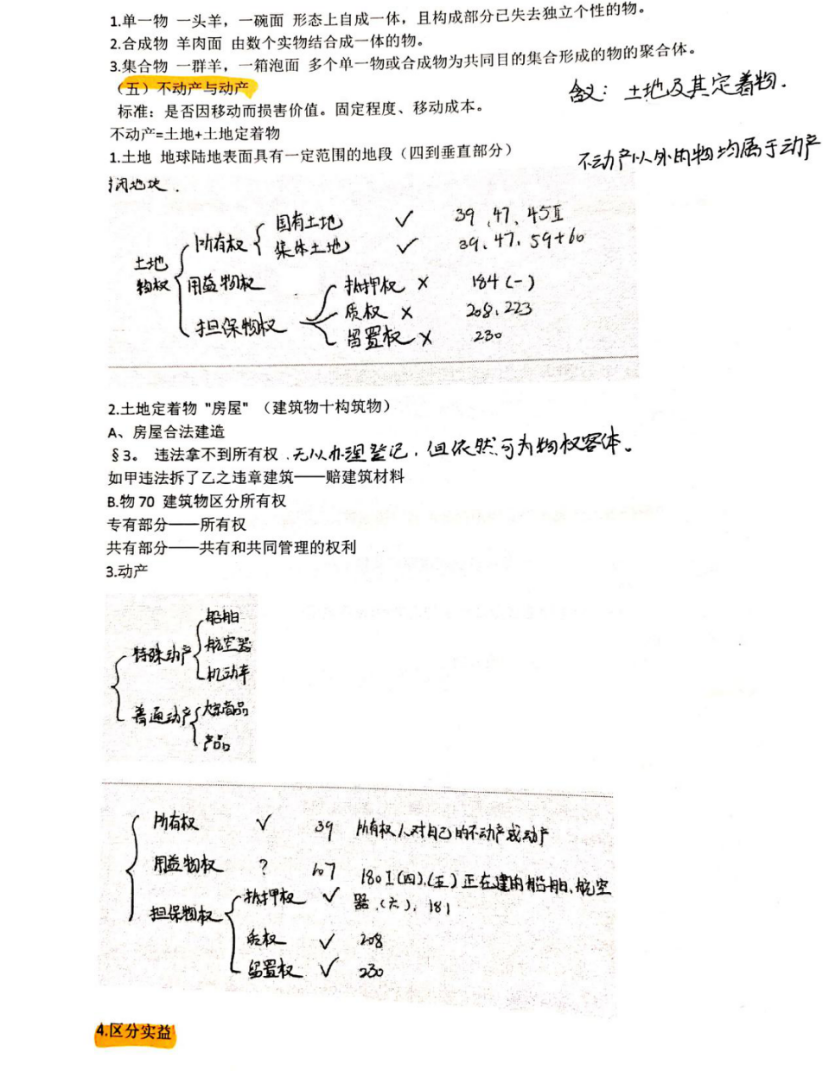 1.单一物 一头羊，一碗面 形态上自成一体，且构成部分已失去独立个性的物。
2.合成物 羊肉面 由数个实物结合成一体的物。
3.集合物 一群羊，一箱泡面 多个单一物或合成物为共同目的集合形成的物的聚合体。
（五）不动产与动产
含义：土地及其定着物.
标准：是否因移动而损害价值。固定程度、移动成本。
不动产=土地+土地定着物
1.土地 地球陆地表面具有一定范围的地段（四到垂直部分）
不动产以外的物均属于动产
土地物权
所有权 国有土地 ✓ 39、47、45Ⅱ
集体土地 ✓ 39、47、59+60
用益物权
担保物权 抵押权 × 184(一)
质权 × 208、223
留置权 × 230
2.土地定着物 "房屋" （建筑物十构筑物）
A、房屋合法建造
§3。 违法拿不到所有权 .无从办理登记，但依然可为物权客体。
如甲违法拆了乙之违章建筑——赔建筑材料
B.物 70 建筑物区分所有权
专有部分——所有权
共有部分——共有和共同管理的权利
3.动产
特殊动产 船舶
航空器
机动车
普通动产
产品
所有权 ✓ 39 所有权人对自己的不动产或动产
用益物权 ? 107
担保物权 抵押权 ✓ 180Ⅰ(四)、(五)正在建的船舶、航空器、(六)，181
质权 ✓ 208
留置权 ✓ 230
4.区分实益